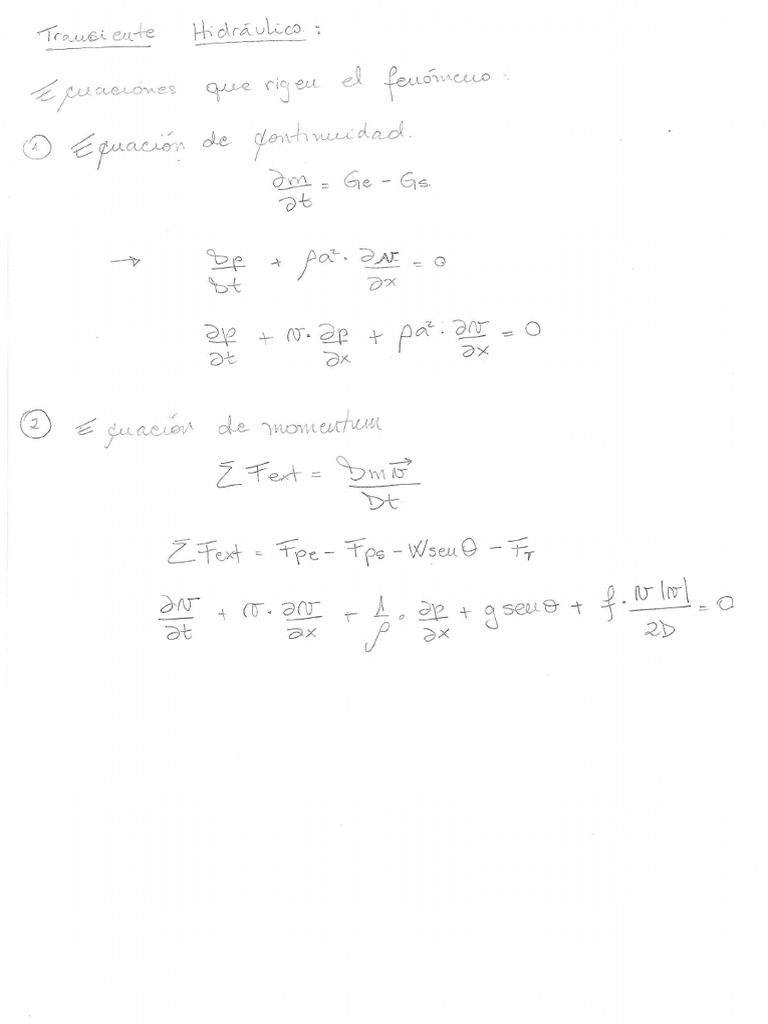 Transiente Hidráulico:
Ecuaciones que rigen el fenómeno:
① Ecuación de Continuidad.
∂m/∂t = Ge - Gs.
→ Dp/Dt + ρa² · ∂v/∂x = 0
∂p/∂t + v · ∂p/∂x + ρa² · ∂v/∂x = 0
② Ecuación de momentum
Σ Fext = Dmv⃗/Dt
Σ Fext = Fpe - Fps - W senθ - Fr
∂v/∂t + v · ∂v/∂x + 1/ρ · ∂p/∂x + g senθ + f · v|v|/2D = 0